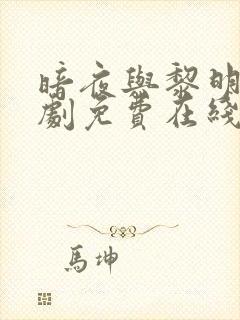 暗夜與黎明
劇免費在綫
馬坤